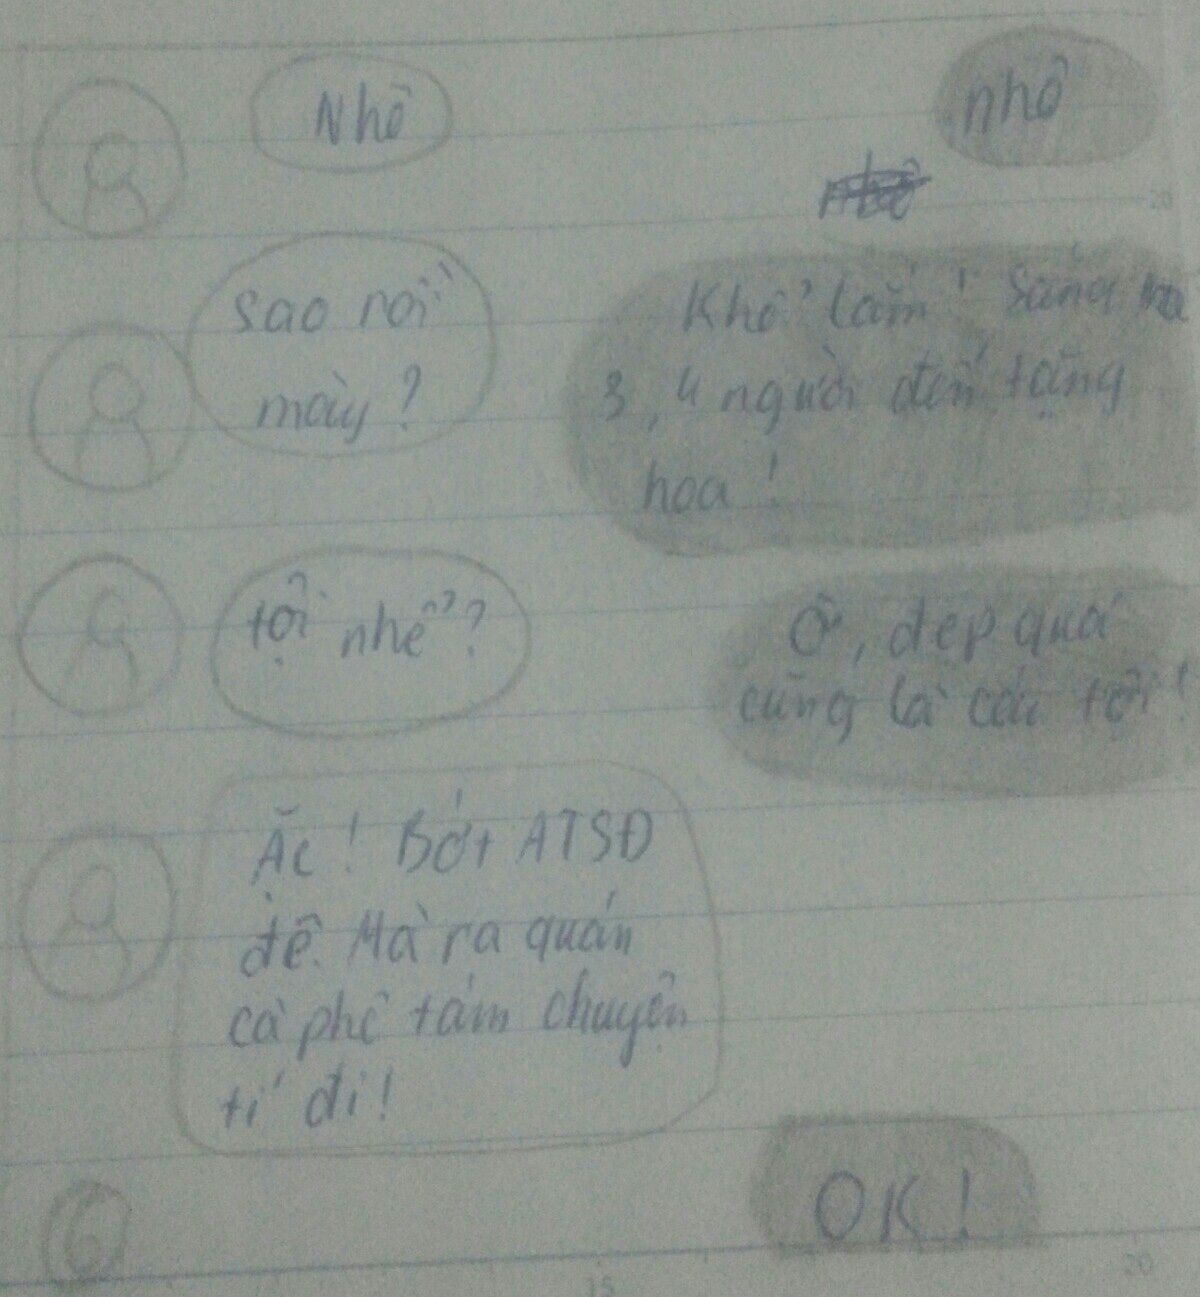 Nhô
nhô
Sao rồi
mày?
Khổ lắm! Sáng
3, 4 người đến tặng
hoa!
tội nhể?
Ờ, đẹp quá
cũng là cái tội!
Ặc! Bớt ATSĐ
đê. Mà ra quán
cà phê tám chuyện
tí đi!
OK!
15
20
20